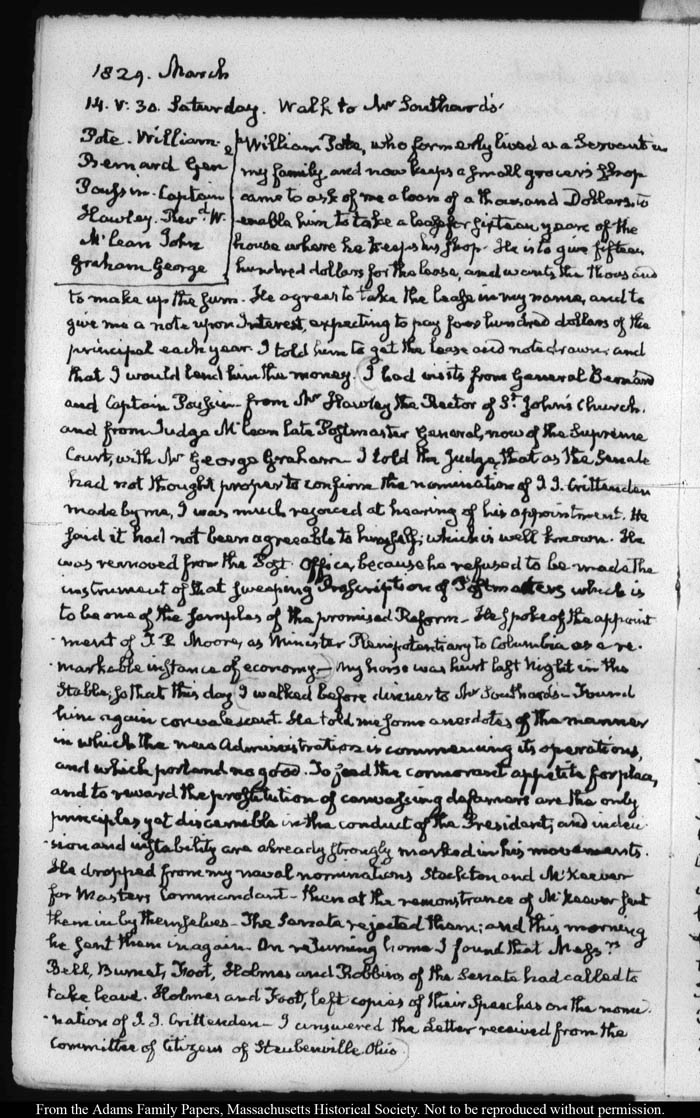 1829. March
14. V: 30. Saturday. Walk to Mr Southard's.
Pote. William.
Bernard Gen
Poussin. Captain
Hawley. Revd. W.
McLean John
Graham George
William Pote, who formerly lived as a Servant in
my family and now keeps a small grocer's shop
came to ask of me a loan of a thousand Dollars, to
enable him to take a lease for sixteen years of the
house where he keeps his shop. He is to give fifteen
hundred dollars for the lease, and wants the thousand
to make up the sum. He agrees to take the lease in my name, and to
give me a note upon Interest, expecting to pay four hundred dollars of the
principal each year. I told him to get the lease and note drawn; and
that I would lend him the money. I had visits from General Bernard
and Captain Poussin—from Mr Hawley the Rector of St. John's Church.
and from Judge McLean late Postmaster General, now of the Supreme
Court, with Mr George Graham. I told the Judge, that as the Senate
had not thought proper to confirm the nomination of J. J. Crittenden
made by me, I was much rejoiced at hearing of his appointment. He
said it had not been agreeable to himself; which is well known. He
was removed from the Post Office, because he refused to be made the
instrument of that sweeping Proscription of Postmasters which is
to be one of the samples of the promised Reform—He spoke of the appoint
-ment of T. P. Moore, as Minister Plenipotentiary to Columbia as a re-
-markable instance of economy—My horse was hurt last Night in the
Stable; so that this day I walked before dinner to Mr Southard's—Found
him again convalescent. He told me some anecdotes of the manner
in which the new Administration is commencing its operations,
and which portend no good. To feed the cormorant appetite for place,
and to reward the prostitution of canvassing defamers are the only
principles yet discernible in the conduct of the President; and indeci
-sion and instability are already strongly marked in his movements.
He dropped from my naval nominations Stockton and McKeever
for Masters Commandant—then at the remonstrance of McKeever sent
them in by themselves—The Senate rejected them; and this morning
he sent them in again. On returning home I found that Messrs
Bell, Burnet, Foot, Holmes and Robbins of the Senate had called to
take leave. Holmes and Foot, left copies of their Speeches on the nomi-
-nation of J. J. Crittenden—I answered the Letter received from the
Committee of Citizens of Steubenville Ohio
From the Adams Family Papers, Massachusetts Historical Society. Not to be reproduced without permission.